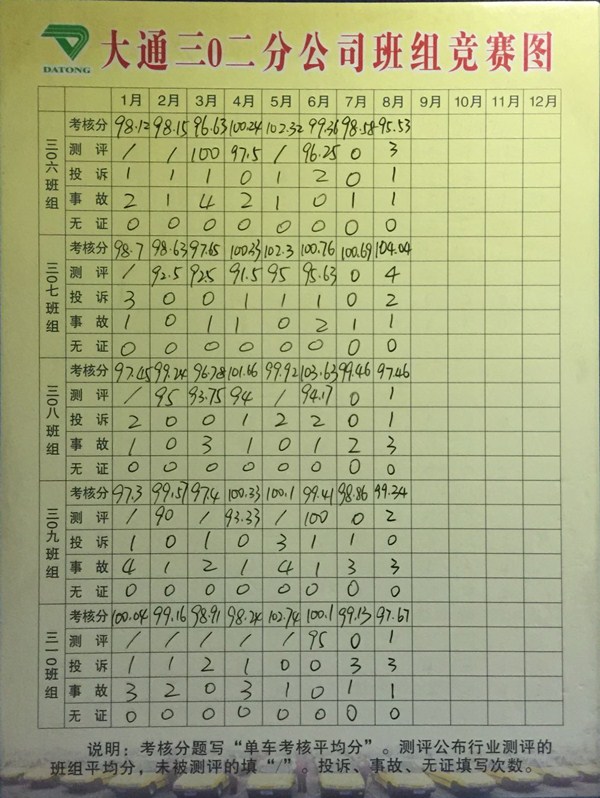 DATONG
大通三0二分公司班组竞赛图
1月 2月 3月 4月 5月 6月 7月 8月 9月 10月 11月 12月
三〇六班组
考核分 98.12 98.15 96.63 100.24 102.32 99.36 98.58 95.53
测评 / / 100 97.5 / 96.25 0 3
投诉 1 1 1 0 1 2 0 1
事故 2 1 4 2 1 0 1 1
无证 0 0 0 0 0 0 0 0
三〇七班组
考核分 98.7 98.63 97.65 100.33 102.3 100.76 100.69 104.04
测评 / 92.5 92.5 91.5 95 95.63 0 4
投诉 3 0 0 1 1 1 0 2
事故 1 0 1 1 0 2 1 1
无证 0 0 0 0 0 0 0 0
三〇八班组
考核分 97.45 99.24 96.78 101.66 99.92 103.63 99.46 97.46
测评 / 95 93.75 94 / 94.17 0 1
投诉 2 0 0 1 2 2 0 1
事故 1 0 3 1 0 1 2 3
无证 0 0 0 0 0 0 0 0
三〇九班组
考核分 97.3 99.57 97.4 100.33 100.1 99.41 98.86 99.34
测评 / 90 / 93.33 / 100 0 2
投诉 1 0 1 0 3 1 1 0
事故 4 1 2 1 4 1 3 3
无证 0 0 0 0 0 0 0 0
三一〇班组
考核分 100.04 99.16 98.91 98.24 102.74 100.1 99.13 97.67
测评 / / / / / 95 0 1
投诉 1 1 2 1 0 0 3 3
事故 3 2 0 3 1 0 1 1
无证 0 0 0 0 0 0 0 0
说明：考核分题写“单车考核平均分”。测评公布行业测评的
班组平均分，未被测评的填“/”。投诉、事故、无证填写次数。